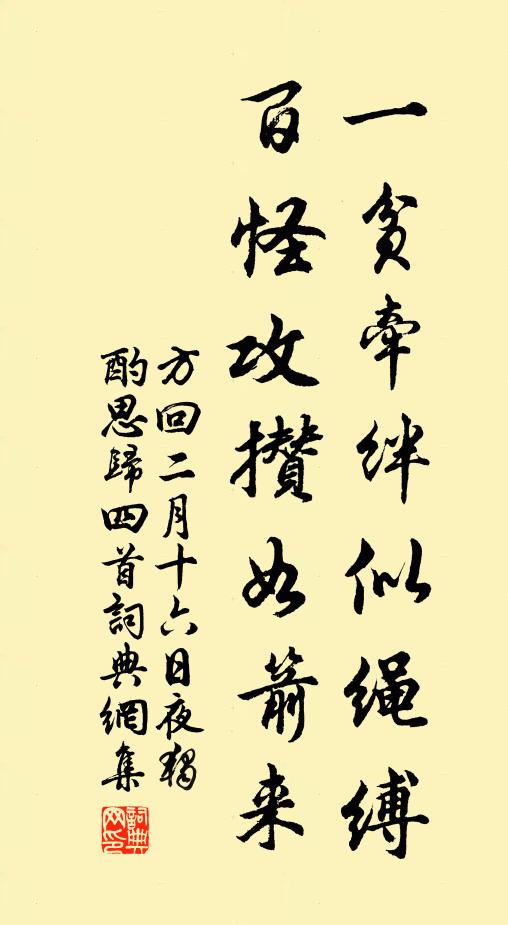 一贫牵绊似绳缚
百怪攻攒如箭来
方回二月十六日夜独
酌思歸四首詞典網集
詞典
网印